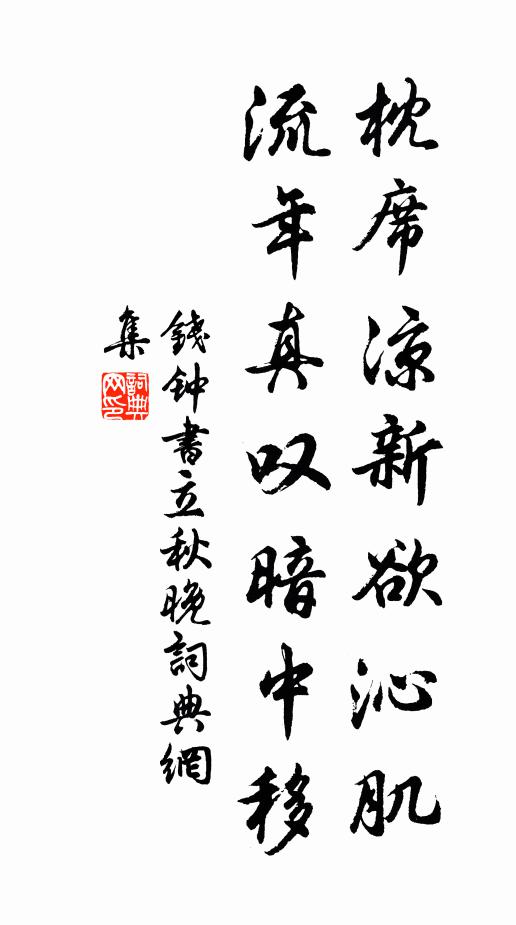 枕席凉新欲沁肌
流年真叹暗中移
錢钟書立秋晚詞典網
集
詞典
网印